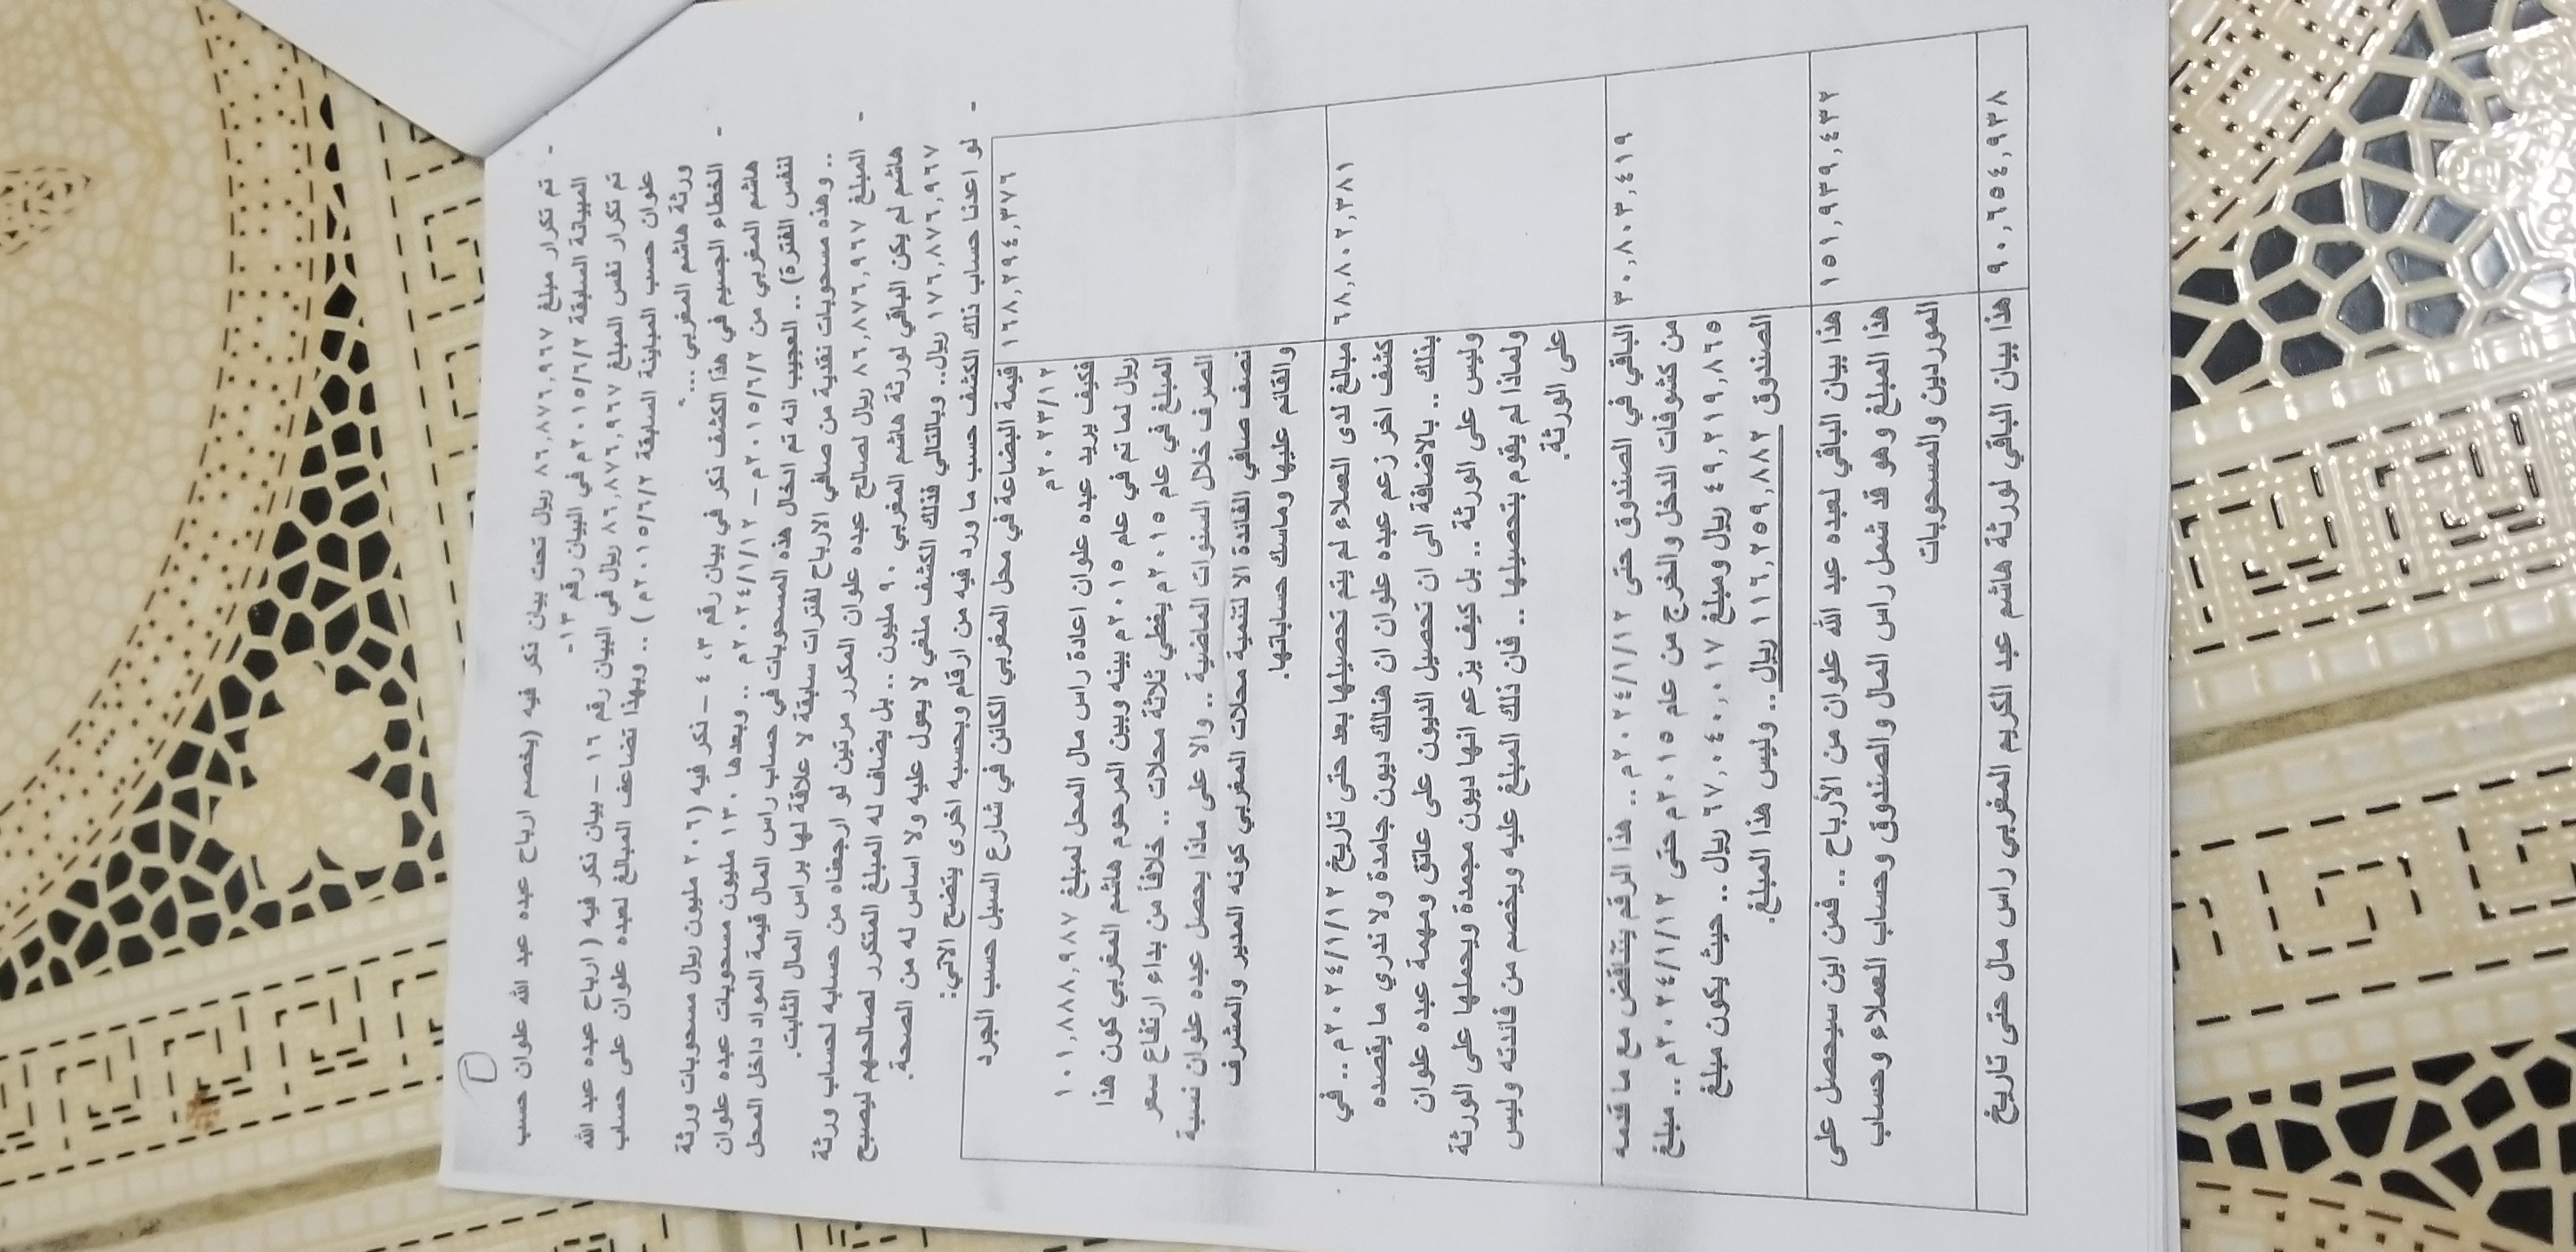 - تم تكرار مبلغ ٨٦,٨٧٦,٩٦٧ ريال تحت بيان ذكر فيه (يخصم ارباح عبده عبد الله علوان حسب
المبياتة السابقة ٢٠١٥/٦/٢م في البيان رقم ١٣-
تم تكرار نفس المبلغ ٨٦,٨٧٦,٩٦٧ ريال في البيان رقم ١٦ – بيان ذكر فيه ( ارباح عبده عبد الله
علوان حسب المباينة السابقة ٢٠١٥/٦/٢م ) .. وبهذا تضاعف المبالغ لعبده علوان على حساب
ورثة هاشم المغربي ...
- الخطاء الجسيم في هذا الكشف ذكر في بيان رقم ٤،٣ – ذكر فيه (٢٠٦ مليون ريال مسحوبات ورثة
هاشم المغربي من ٢٠١٥/٦/٢م – ٢٠٢٤/١/١٢م .. وبعدها ١٣٠ مليون مسحوبات عبده علوان
لنفس الفترة) .. العجيب انه تم ادخال هذه المسحوبات في حساب راس المال قيمة المواد داخل المحل
.. وهذه مسحوبات نقدية من صافي الارباح لفترات سابقة لا علاقة لها براس المال الثابت.
- المبلغ ٨٦,٨٧٦,٩٦٧ ريال لصالح عبده علوان المكرر مرتين لو ارجعناه من حسابه لحساب ورثة
هاشم لم يكن الباقي لورثة هاشم المغربي ٩٠ مليون .. بل يضاف له المبلغ المتكرر لصالحهم ليصبح
١٧٦,٨٧٦,٩٦٧ ريال.. وبالتالي فذلك الكشف ملغي لا يعول عليه ولا اساس له من الصحة.
- لو اعدنا حساب ذلك الكشف حسب ما ورد فيه من ارقام وبحسبه اخرى يتضح الاتي:
قيمة البضاعة في محل المغربي الكائن في شارع السيل حسب الجرد ١٦٨,٢٩٤,٣٧٦
٢٠٢٣/١٢م
فكيف يريد عبده علوان اعادة راس مال المحل لمبلغ ١٠١,٨٨٨,٩٨٧
ريال لما تم في عام ٢٠١٥م بينه وبين المرحوم هاشم المغربي كون هذا
المبلغ في عام ٢٠١٥م يغطي ثلاثة محلات .. خلافاً من بداء ارتفاع سعر
الصرف خلال السنوات الماضية .. والا على ماذا يحصل عبده علوان نسبة
نصف صافي الفائدة الا لتنمية محلات المغربي كونه المدير والمشرف
والقائم عليها وماسك حساباتها.
مبالغ لدى العملاء لم يتم تحصيلها بعد حتى تاريخ ٢٠٢٤/١/١٢م .. في ٦٨,٨٠٢,٣٨١
كشف اخر زعم عبده علوان ان هنالك ديون جامدة ولا ندري ما يقصده
بذلك .. بالاضافة الى ان تحصيل الديون على عاتق ومهمة عبده علوان
وليس على الورثة .. بل كيف يزعم انها ديون مجمدة ويحملها على الورثة
ولماذا لم يقوم بتحصيلها .. فان ذلك المبلغ عليه ويخصم من فائدته وليس
على الورثة.
الباقي في الصندوق حتى ٢٠٢٤/١/١٢م .. هذا الرقم يتناقض مع ما قدمه ٣٠,٨٠٣,٤١٩
من كشوفات الدخل والخرج من عام ٢٠١٥م حتى ٢٠٢٤/١/١٢م .. مبلغ
٤٩,٢١٩,٨٦٥ ريال ومبلغ ٦٧,٠٤٠,٠١٧ ريال .. حيث يكون مبلغ
الصندوق ١١٦,٢٥٩,٨٨٢ ريال .. وليس هذا المبلغ.
هذا بيان الباقي لعبده عبد الله علوان من الأرباح .. فمن اين سيحصل على ١٥١,٩٣٩,٤٣٢
هذا المبلغ وهو قد شمل راس المال والصندوق وحساب العملاء وحساب
الموردين والمسحوبات
هذا بيان الباقي لورثة هاشم عبد الكريم المغربي راس مال حتى تاريخ ٩٠,٦٥٤,٩٣٨